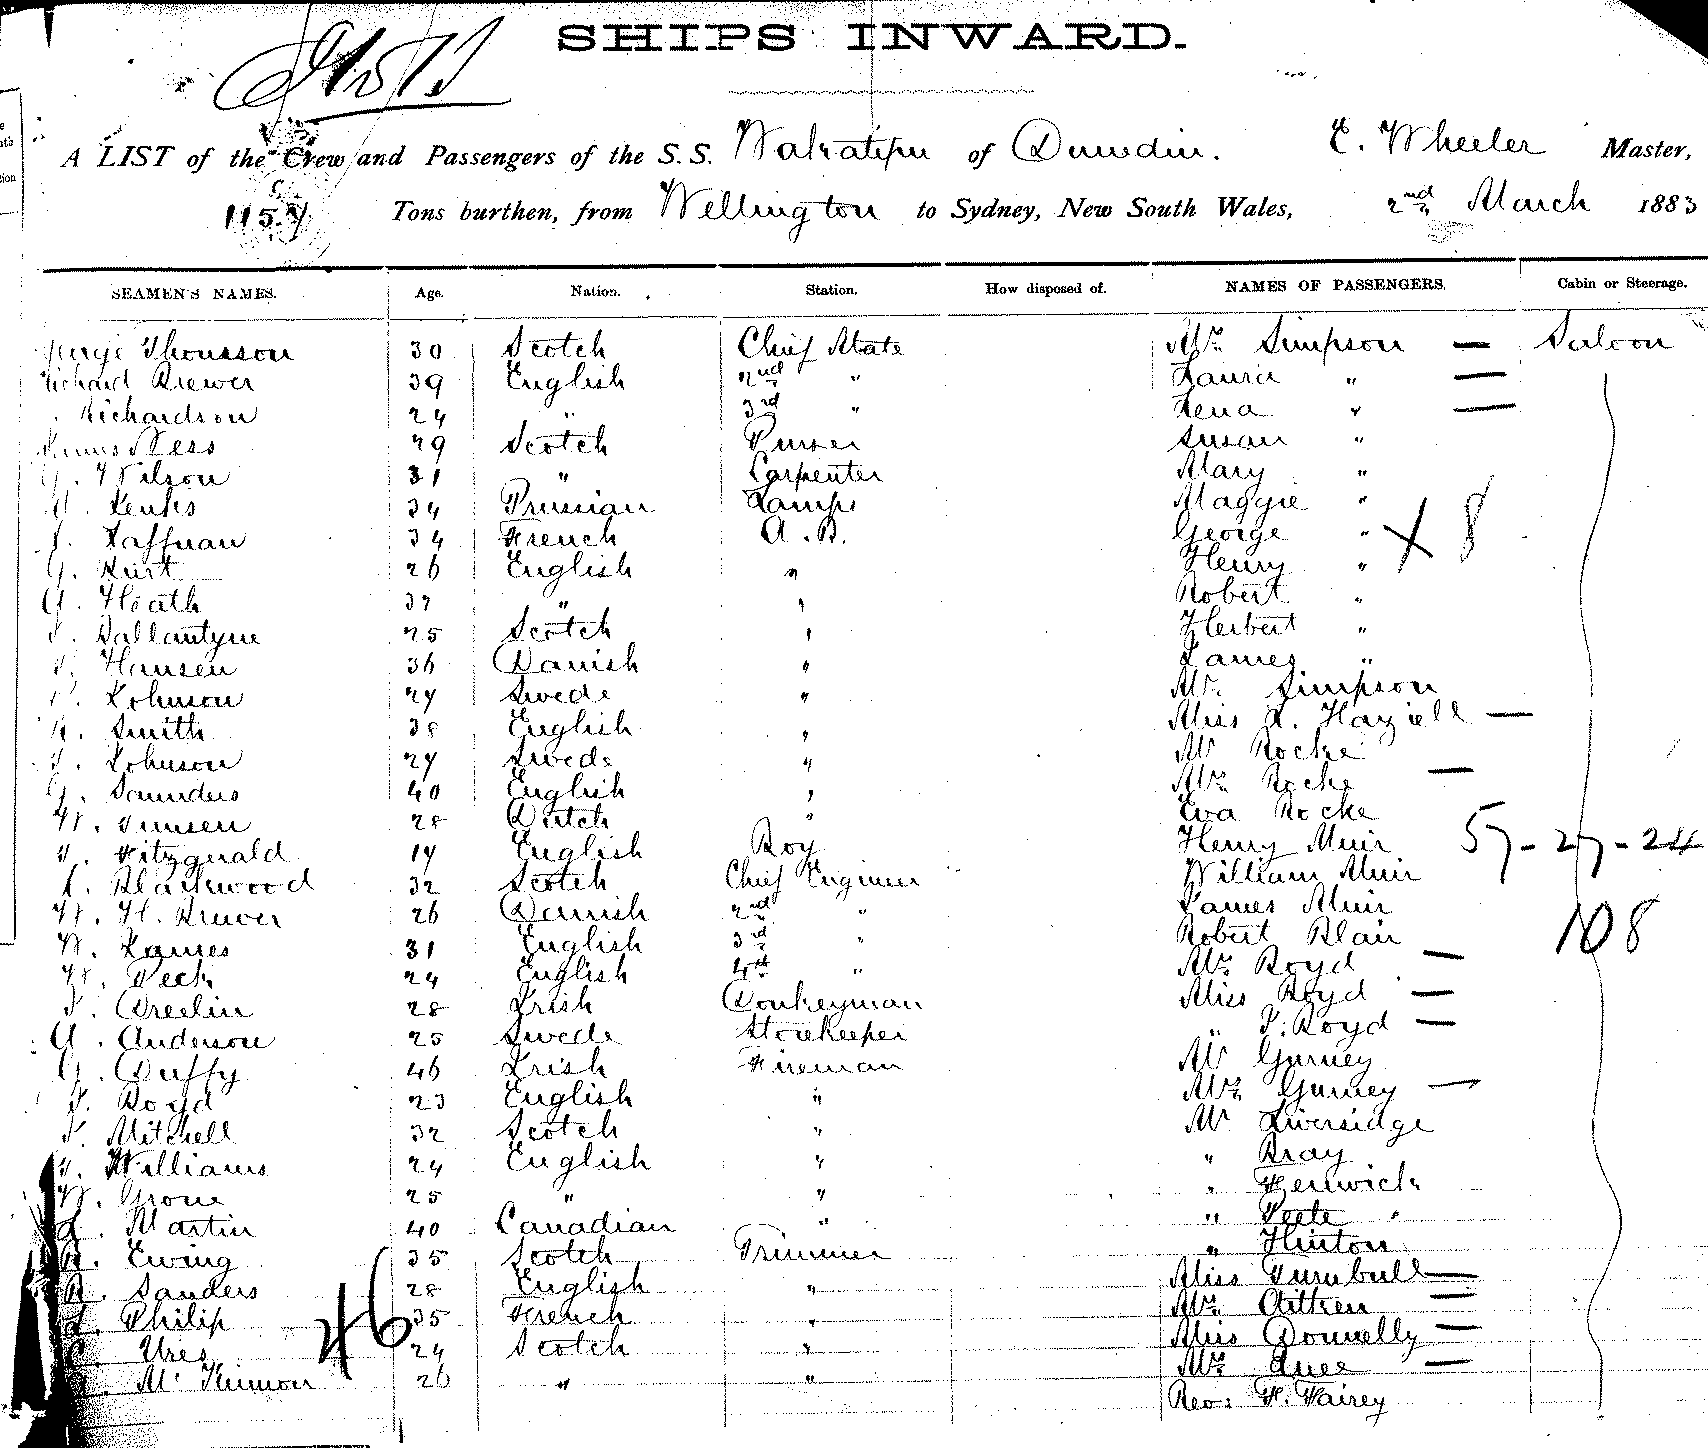 SHIPS INWARD.
A LIST of the Crew and Passengers of the S.S. Wakatipu of Dunedin. E. Wheeler Master,
1157 Tons burthen, from Wellington to Sydney, New South Wales, 2nd March 1883
SEAMEN'S NAMES. Age. Nation. Station. How disposed of. NAMES OF PASSENGERS. Cabin or Steerage.
Thomson 30 Scotch Chief Mate Mrs Simpson — Saloon
Richard Brewer 39 English 2nd " Laura " —
Richardson 24 " 3rd " Lena " —
Ness 29 Scotch Purser Susan "
Wilson 31 " Carpenter Mary "
34 Prussian Lamps Maggie "
J. 34 French A.B. George " X 8
G. 26 English " Henry "
G. Heath 37 " " Robert "
Ballantyne 25 Scotch " Herbert "
Hansen 36 Danish " James "
Johnson 24 Swede " Mr Simpson
R. Smith 38 English " Miss L. Haziell —
Johnson 24 Swede " Mr Rocke
G. Saunders 40 English " Mrs Rocke —
W. 28 Dutch " Eva Rocke
Fitzgerald 14 English Boy Henry Muir 57-27-24
Blackwood 32 Scotch Chief Engineer William Muir
W. H. Brewer 26 Danish 2nd " James Muir
W. James 31 English 3rd " Robert Blair 108
W. Peck 24 English 4th " Mrs Boyd —
28 Irish Donkeyman Miss Boyd —
A. Anderson 25 Swede Storekeeper " J. Boyd —
G. Duffy 46 Irish Fireman Mr Gurney
J. Boyd 23 English " Mrs Gurney —
J. Mitchell 32 Scotch " Mr Liversidge
Williams 24 English " " Bray
W. 25 " " " Fenwick
Martin 40 Canadian " " Peete
R. Ewing 35 Scotch Trimmer " Hinton
Sanders 28 English " Miss Turnbull —
Philip 35 French " Mrs Aitken —
Ures 24 Scotch " Miss Donnelly —
46
Mc Kinnon 26 " " Mrs —
Rev: F. Fairey